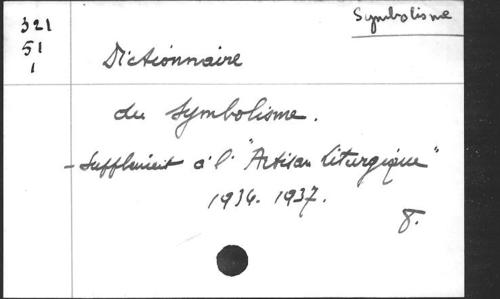 Symbolisme
321
51
1
Dictionnaire
du Symbolisme.
- Supplément à l' "Artisan liturgique"
1936-1937.
8.